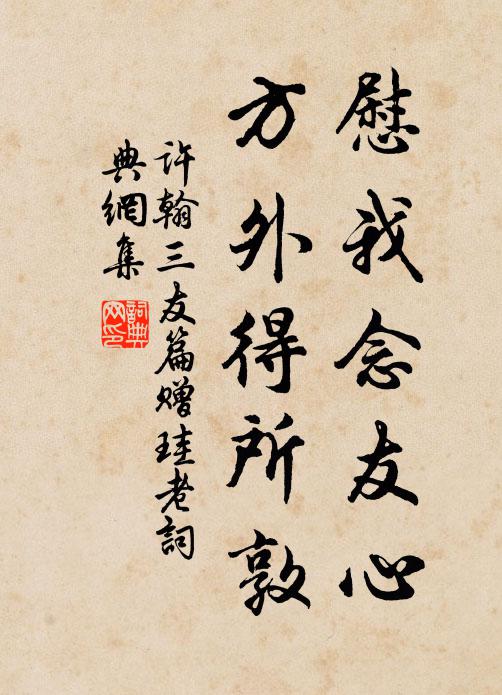 慰我念友心
方外得所敦
许翰三友篇赠珪老詞
典網集
詞典
网印